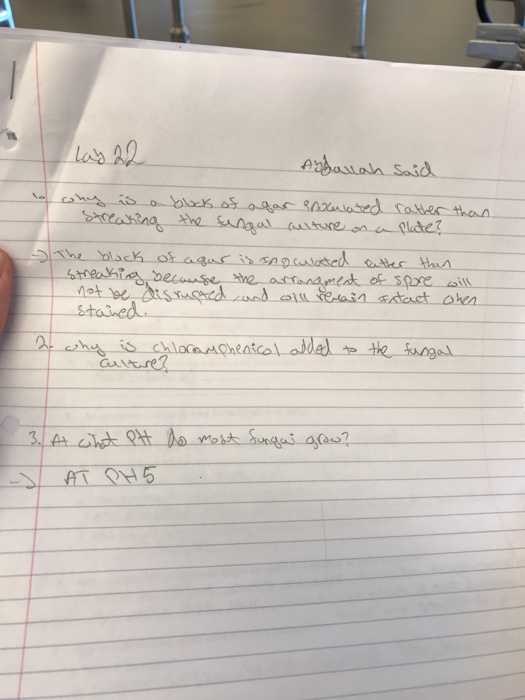 Lab 22
Abdallah Said
1. why is a block of agar inoculated rather than
streaking the fungal culture on a plate?
→ The block of agar is inoculated rather than
streaking because the arrangment of spore will
not be disrupted and will remain intact when
stained.
2. why is chloramphenicol added to the fungal
culture?
3. At what PH do most fungai grow?
→ AT PH5